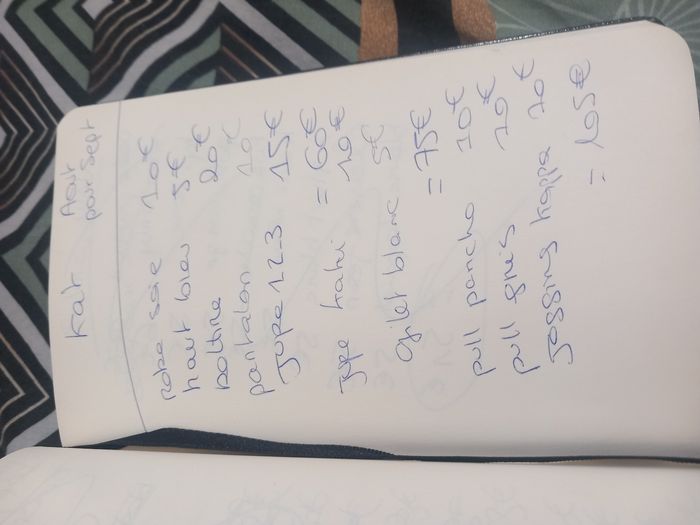 Kat Aout
pour Sept
robe soie 10€
haut bleu 5€
bottine 20€
pantalon 10
Jupe 123 15€
= 60€
Jupe kaki 10€
gilet blanc 5€
= 75€
pull pancho 10€
pull gris 10€
Jogging kappa 10€
= 105€